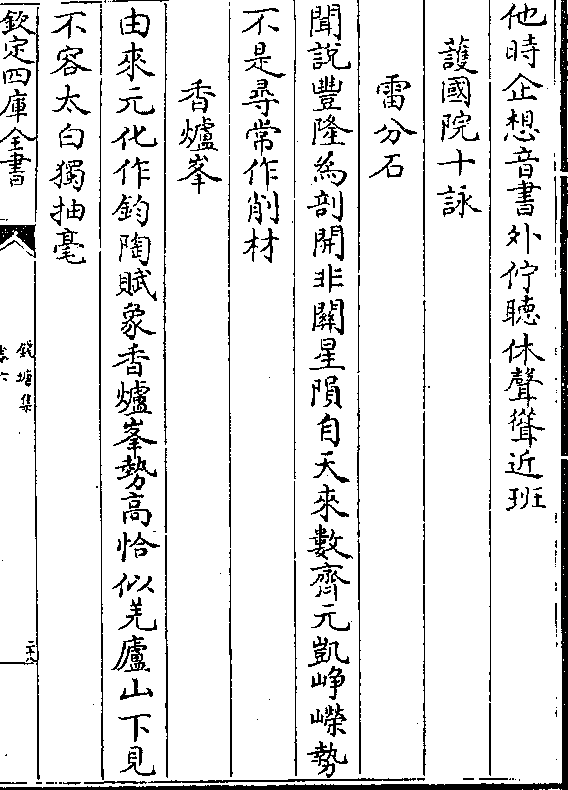 他時企想音書外佇聴休聲聳近班
護國院十詠
雷分石
聞說豐隆為剖開非關星隕自天來數齊元凱崢嶸勢
不是尋常作削材
香爐峯
由來元化作鈞陶賦象香爐峯勢高恰似羌廬山下見
不容太白獨抽毫
欽定四庫全書
錢塘集
卷六
二十八